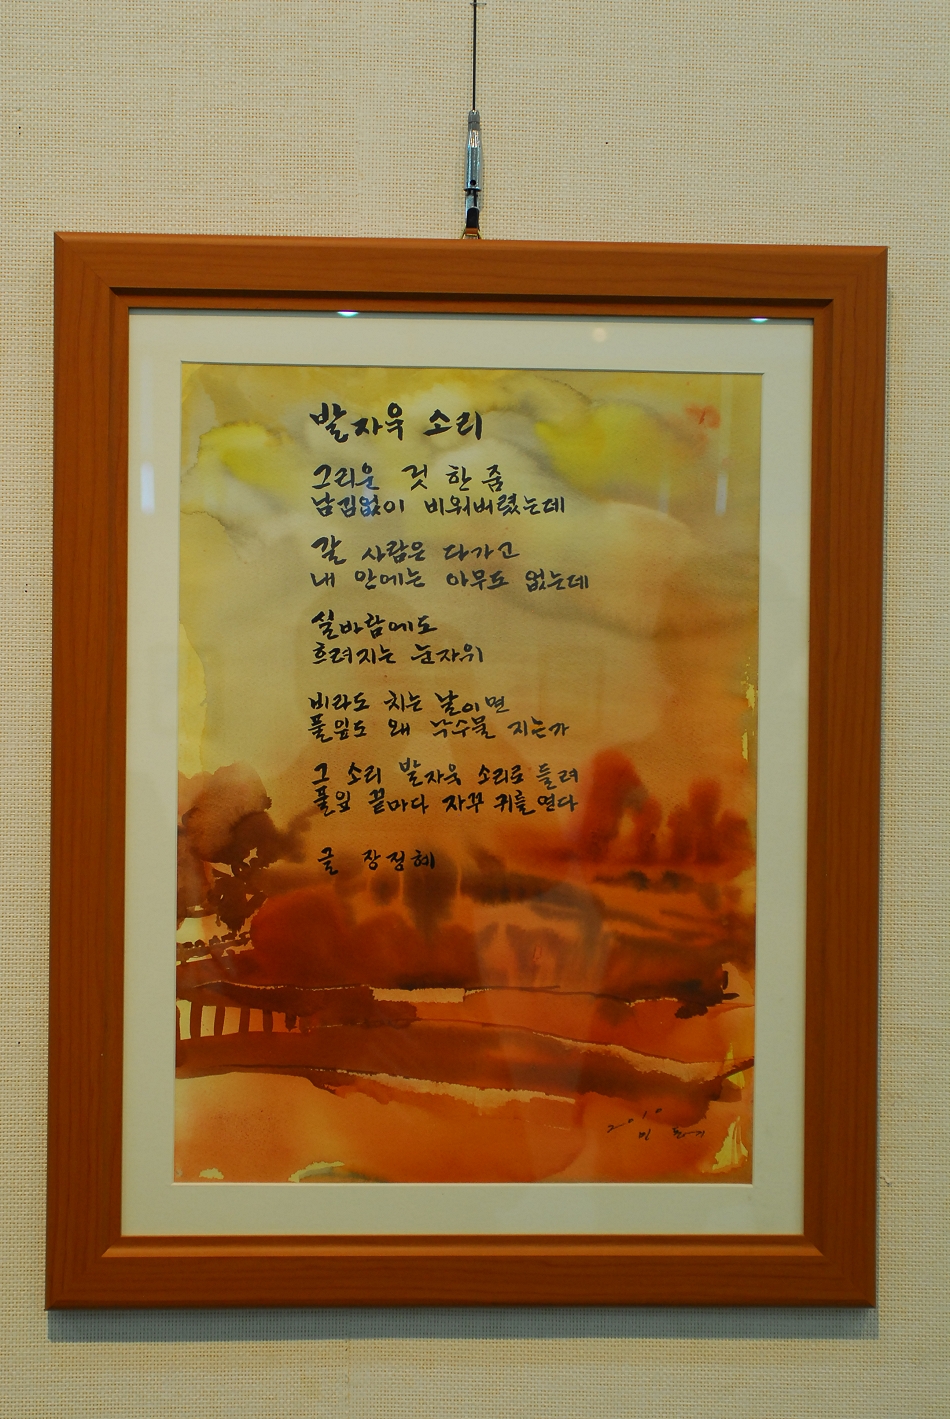 발자욱 소리
그리운 것 한 줌
남김없이 비워버렸는데
갈 사람은 다가고
내 안에는 아무도 없는데
실바람에도
흐려지는 눈자위
비라도 치는 날이면
풀잎도 왜 낙수물 지는가
그 소리 발자욱 소리로 들려
풀잎 끝마다 자꾸 귀를 연다
글 장정혜
2010
민